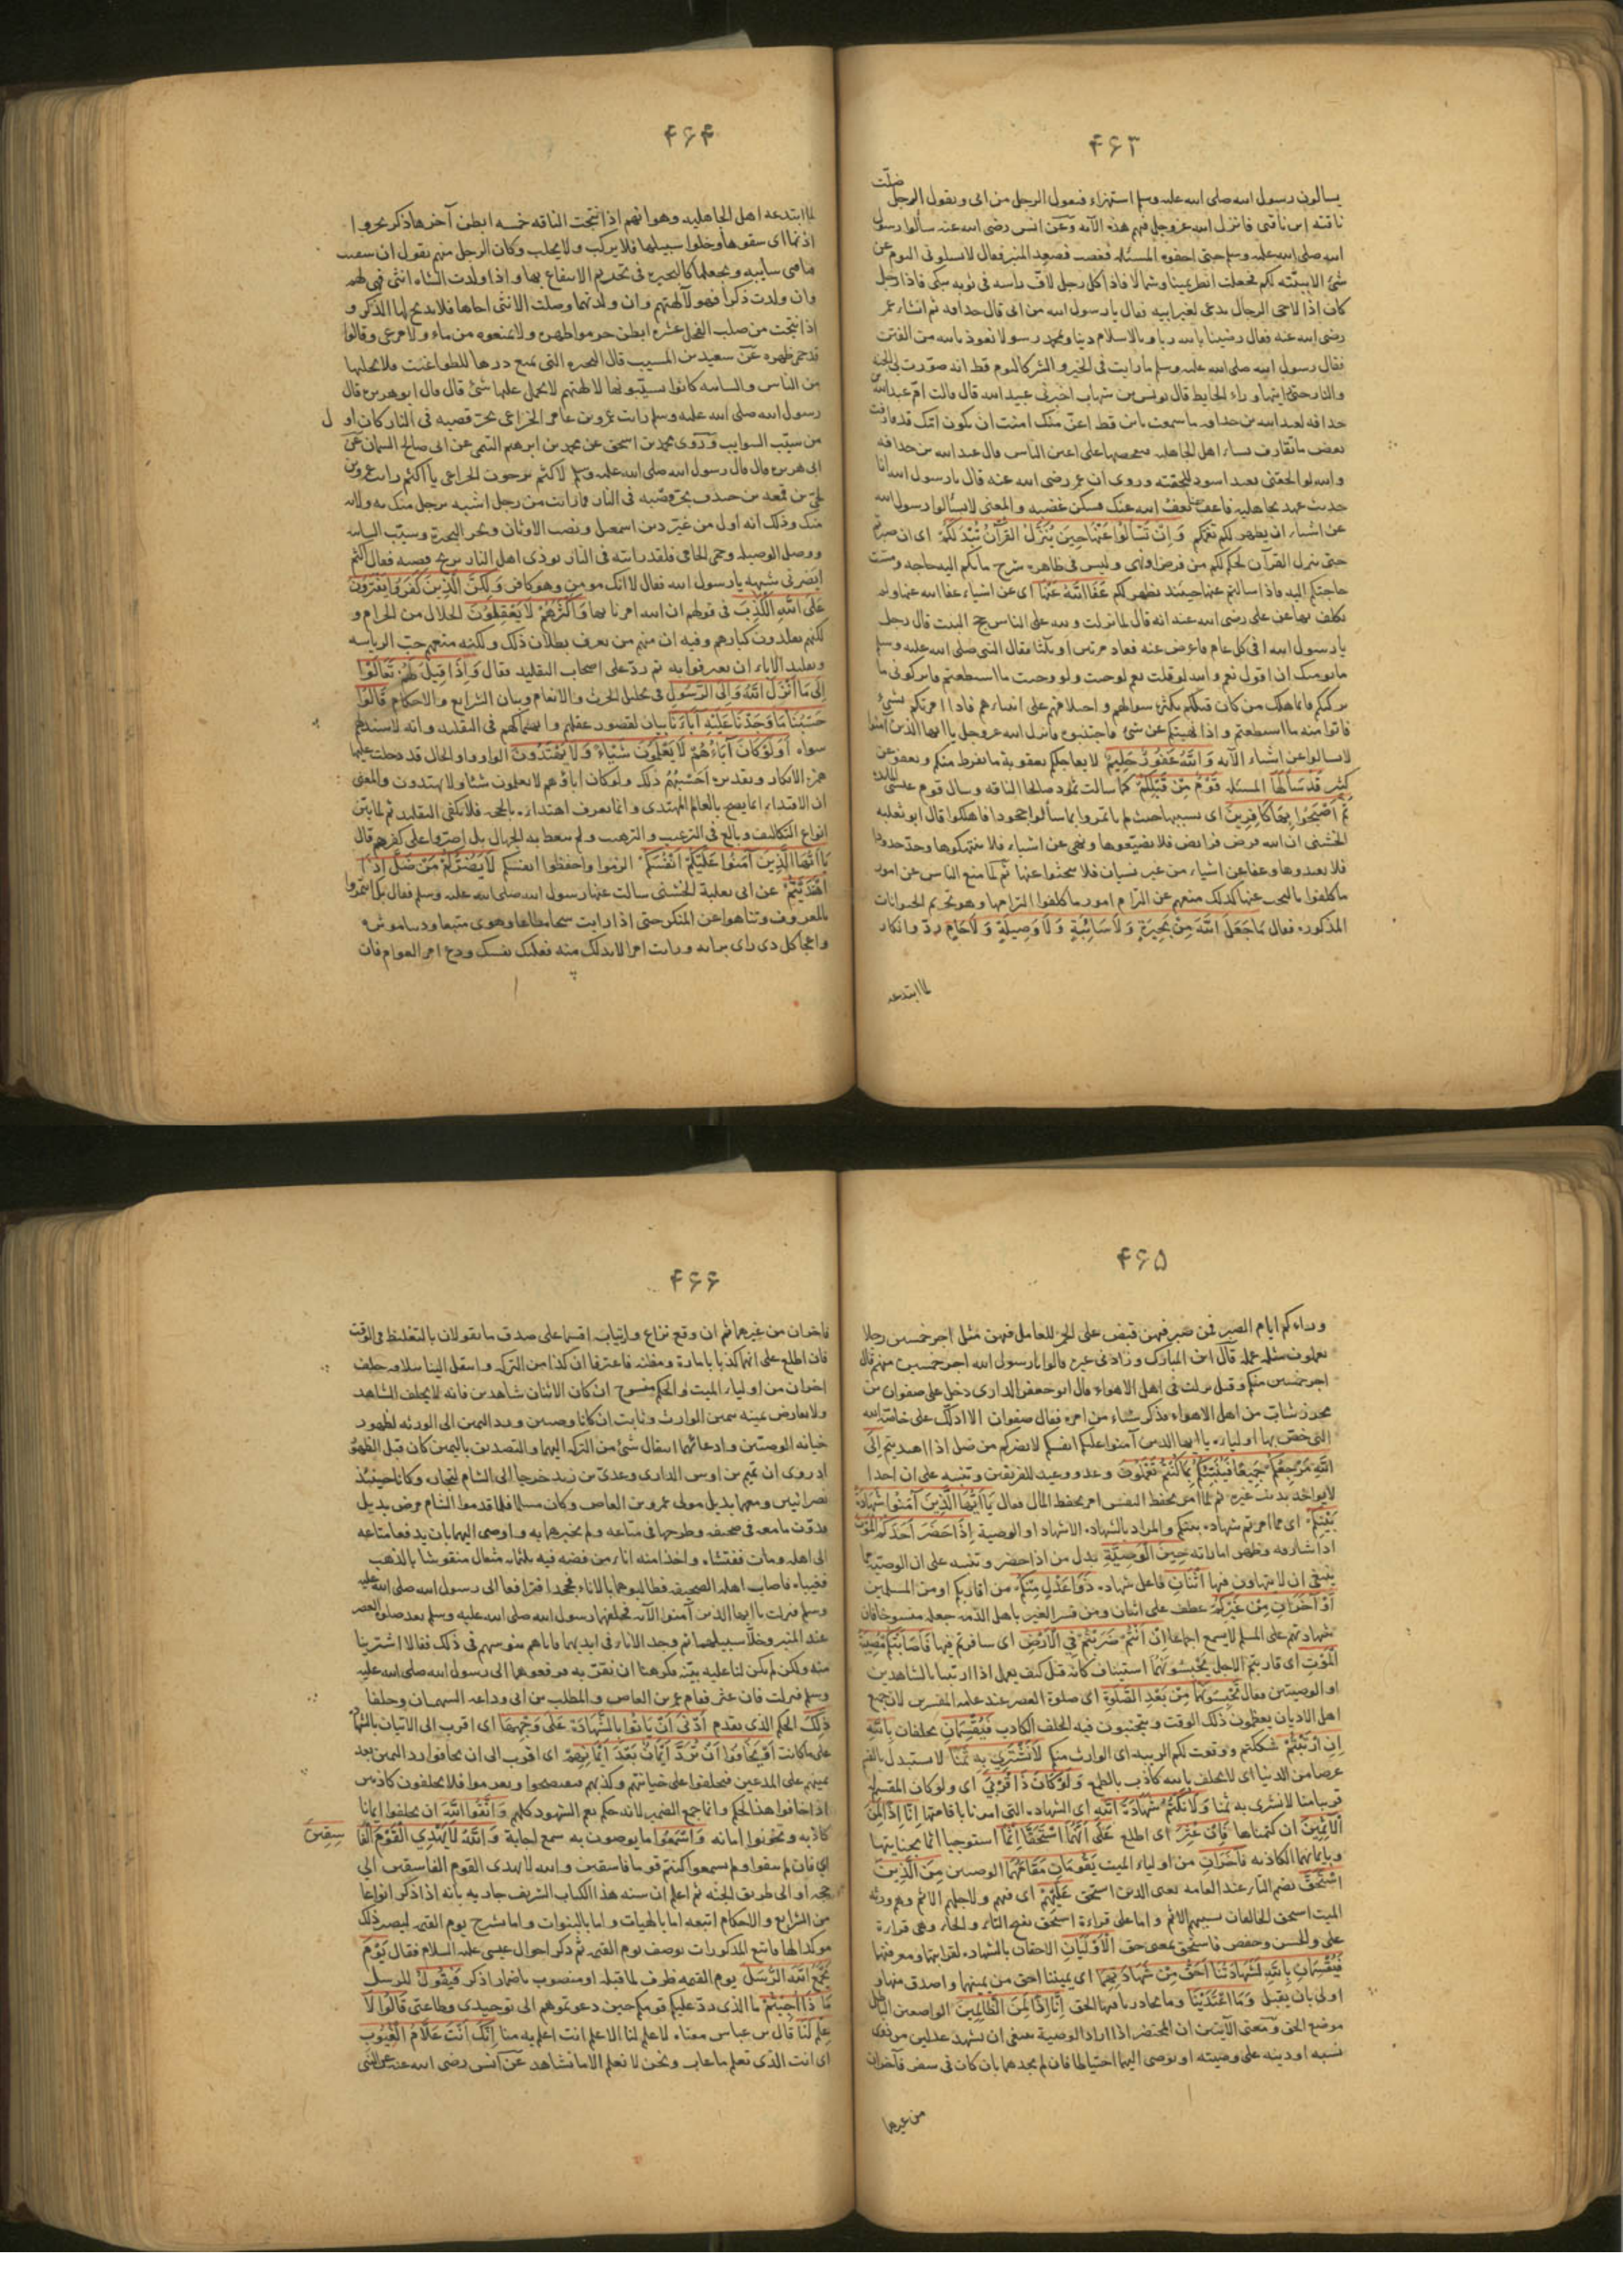 ۴۶۳
ضلّت
يسالون رسول الله صلى الله عليه وسلم استهزاء فيقول الرجل من ابى ويقول الرجل
ناقته اين ناقتى فانزل الله عز وجل فيهم هذه الآية وعن انس رضى الله عنه سألوا رسول
الله صلى الله عليه وسلم حتى احفوه المسئلة فغضب فصعد المنبر فقال لا تسئلونى اليوم عن
شئ الا بينته لكم فجعلت انظر يمينا وشمالا فاذا كل رجل لاف راسه فى ثوبه يبكى فاذا رجل
كان اذا لاحى الرجال يدعى لغير ابيه فقال يا رسول الله من ابى قال حذافه ثم انشاء عمر
رضى الله عنه فقال رضينا بالله ربا وبالاسلام دينا وبمحمد رسولا نعوذ بالله من الفتن
فقال رسول الله صلى الله عليه وسلم ما رايت فى الخير والشر كاليوم قط انه صورت لى الجنة
والنار حتى رايتهما وراء الحايط قال يونس بن شهاب اخبرنى عبيد الله قال قالت ام عبد الله بن
حذافه لعبد الله بن حذافه ما سمعت بابن قط اعق منك امنت ان يكون امك قد قارفت
بعض ما تقارف نساء اهل الجاهليه فتفضحها على اعين الناس قال عبد الله بن حذافه
والله لو الحقنى بعبد اسود للحقته وروى ان عمر رضى الله عنه قال يا رسول الله انا
حديث عهد بجاهليه فاعف عنا يعف الله عنك فسكن غضبه والمعنى لا تسألوا رسول الله
عن اشياء ان يظهر لكم تغمكم وَاِنْ تَسْأَلُوا عَنْهَا حِينَ يُنَزَّلُ الْقُرْآنُ تُبْدَ لَكُمْ اى ان صبرتم
حتى ينزل القرآن بحكم لكم من فرض او نهى وليس فى ظاهره شرح ما بكم اليه حاجه ومست
حاجتكم اليه فاذا سالتم عنها حينئذ يظهر لكم عَفَا اللَّهُ عَنْهَا اى عن اشياء عفا الله عنها ولم
يكلف بها عن على رضى الله عنه انه قال لما نزلت ولله على الناس حج البيت قال رجل
يا رسول الله افى كل عام فاعرض عنه فعاد مرتين او ثلثا فقال النبى صلى الله عليه وسلم
ما يومنك ان اقول نعم والله لو قلت نعم لوجبت ولو وجبت ما استطعتم فاتركونى ما
تركتكم فانما هلك من كان قبلكم بكثرة سوالهم واختلافهم على انبياءهم فاذا امرتكم بشئ
فاتوا منه ما استطعتم واذا نهيتكم عن شئ فاجتنبوه فانزل الله عز وجل يا ايها الذين امنوا
لا تسالوا عن اشياء الآيه وَاللَّهُ غَفُورٌ حَلِيمٌ لا يعاجلكم بعقوبة ما يفرط منكم ويعفو عن
كثير قَدْ سَأَلَهَا المسئله قَوْمٌ مِنْ قَبْلِكُمْ كما سالت ثمود صالحا الناقه وسال قوم عيسى المائدة
ثُمَّ أَصْبَحُوا بِهَا كَافِرِينَ اى بسببها حيث لم ياتمروا بما سألوا جحودا فاهلكوا قال ابو ثعلبه
الخشنى ان الله فرض فرايض فلا تضيعوها ونهى عن اشياء فلا تنتهكوها وحد حدودا
فلا تعتدوها وعفا عن اشياء من غير نسيان فلا تبحثوا عنها ثم لما منع الناس عن امور
ما كلفوا بالبحث عنها كذلك منعهم عن التزام امور ما كلفوا التزامها وهو تحريم الحيوانات
المذكوره فقال مَا جَعَلَ اللَّهُ مِنْ بَحِيرَةٍ وَلَا سَائِبَةٍ وَلَا وَصِيلَةٍ وَلَا حَامٍ رد وانكار
لما ابتدعه
۴۶۴
لما ابتدعه اهل الجاهليه وهو انهم اذا نتجت الناقه خمسه ابطن آخرها ذكر بحروا
اذنها اى شقوها وخلوا سبيلها فلا يركب ولا يحلب وكان الرجل منهم يقول ان شفيت
فناقتى سايبه ويجعلها كالبحيره فى تحريم الانتفاع بها واذا ولدت الشاه انثى فهى لهم
وان ولدت ذكرا فهو لآلهتهم وان ولدتهما وصلت الانثى اخاها فلا يذبح لها الذكر و
اذا نتجت من صلب الفحل عشره ابطن حرموا ظهره ولا يمنعوه من ماء ولا مرعى وقالوا
قد حمى ظهره عن سعيد بن المسيب قال البحيره التى يمنع درها للطواغيت فلا يحلبها
من الناس والسائبه كانوا يسيبونها لالهتهم لا يحمل عليها شئ قال قال ابو هريره قال
رسول الله صلى الله عليه وسلم رايت عمرو بن عامر الخزاعى يجر قصبه فى النار كان اول
من سيب السوايب وروى محمد بن اسحق عن محمد بن ابرهيم التيمى عن ابى صالح السمان عن
ابى هريره قال قال رسول الله صلى الله عليه وسلم لاكثم بن جون الخزاعى يا اكثم رايت عمرو بن
لحى بن قمعه بن خندف يجر قصبه فى النار فما رايت من رجل اشبه برجل منك به ولا به
منك وذلك انه اول من غير دين اسمعيل ونصب الاوثان وبحر البحيرة وسيب السايبه
ووصل الوصيله وحمى الحامى فلقد رايته فى النار يوذى اهل النار بريح قصبه فقال اكثم
ايضرنى شبهه يا رسول الله فقال لا انك مومن وهو كافر وَلَكِنَّ الَّذِينَ كَفَرُوا يَفْتَرُونَ
عَلَى اللَّهِ الْكَذِبَ فى قولهم ان الله امرنا بها وَأَكْثَرُهُمْ لَا يَعْقِلُونَ الحلال من الحرام و
لكنهم يقلدون كبارهم وفيه ان منهم من يعرف بطلان ذلك ولكنه منعهم حب الرياسه
وتقليد الاباء ان يعترفوا به ثم رد على اصحاب التقليد فقال وَإِذَا قِيلَ لَهُمْ تَعَالَوْا
إِلَى مَا أَنْزَلَ اللَّهُ وَإِلَى الرَّسُولِ فى تحليل الحرث والانعام وبيان الشرايع والاحكام قَالُوا
حَسْبُنَا مَا وَجَدْنَا عَلَيْهِ آبَاءَنَا بيان لقصور عقلهم وانهماكهم فى التقليد وانه لا سند لهم
سواه أَوَلَوْ كَانَ آبَاءُهُمْ لَا يَعْلَمُونَ شَيْئًا وَلَا يَهْتَدُونَ الواو واو الحال قد دخلت عليها
همزة الانكار وتقديره أحسبهم ذلك ولو كان اباؤهم لا يعلمون شئا ولا يهتدون والمعنى
ان الاقتداء انما يصح بالعالم المهتدى وانما يعرف اهتداؤه بالحجه فلا يكفى التقليد ثم لما بين
انواع التكاليف وبالغ فى الترغيب والترهيب ولم يتعظ به الجهال بل اصروا على كفرهم قال
يَا أَيُّهَا الَّذِينَ آمَنُوا عَلَيْكُمْ أَنْفُسَكُمْ الزموا واحفظوا انفسكم لَا يَضُرُّكُمْ مَنْ ضَلَّ إِذَا
اهْتَدَيْتُمْ عن ابى ثعلبة الخشنى سالت عنها رسول الله صلى الله عليه وسلم فقال بل ائتمروا
بالمعروف وتناهوا عن المنكر حتى اذا رايت شحا مطاعا وهوى متبعا ودنيا موثره
واعجاب كل ذى راى برايه ورايت امرا لا بد لك منه فعليك نفسك ودع امر العوام فان
۴۶۵
وراءكم ايام الصبر فمن صبر فيهن قبض على الجمر للعامل فيهن مثل اجر خمسين رجلا
يعملون مثله عمله قال ابن المبارك وزادنى غيره قالوا يا رسول الله اجر خمسين منهم قال
اجر خمسين منكم وقيل نزلت فى اهل الاهواء قال ابو جعفر الدارى دخل على صفوان بن
محرز شاب من اهل الاهواء فذكر شئاء من امره فقال صفوان الا ادلك على خاصة الله
التى خص بها اولياءه يا ايها الذين آمنوا عليكم انفسكم لا يضركم من ضل اذا اهتديتم إِلَى
اللَّهِ مَرْجِعُكُمْ جَمِيعًا فَيُنَبِّئُكُمْ بِمَا كُنْتُمْ تَعْمَلُونَ وعد ووعيد للفريقين وتنبيه على ان احدا
لا يواخذ بذنب غيره ثم لما امر بحفظ النفس امر بحفظ المال فقال يَا أَيُّهَا الَّذِينَ آمَنُوا شَهَادَةُ
بَيْنِكُمْ اى مما امرتم شهادة بينكم والمراد بالشهادة الاشهاد او الوصية إِذَا حَضَرَ أَحَدَكُمُ الْمَوْتُ
اذا شارفه وظهر اماراته حِينَ الْوَصِيَّةِ بدل من اذا حضر وتنبيه على ان الوصية مما
ينبغى ان لا يتهاون فيها اثْنَانِ فاعل شهادة ذَوَا عَدْلٍ مِنْكُمْ من اقاربكم او من المسلمين
أَوْ آخَرَانِ مِنْ غَيْرِكُمْ عطف على اثنان ومن فسر الغير باهل الذمه جعله منسوخا فان
شهادتهم على المسلم لا يسمع اجماعا إِنْ أَنْتُمْ ضَرَبْتُمْ فِي الْأَرْضِ اى سافرتم فيها فَأَصَابَتْكُمْ مُصِيبَةُ
الْمَوْتِ اى قاربتم الاجل تَحْبِسُونَهُمَا استيناف كانه قيل كيف يعمل اذا ارتبنا بالشاهدين
او الوصيين فقال تَحْبِسُونَهُمَا مِنْ بَعْدِ الصَّلَوةِ اى صلوة العصر عند عامة المفسرين لان جميع
اهل الاديان يعظمون ذلك الوقت ويجتنبون فيه الحلف الكاذب فَيُقْسِمَانِ يحلفان بِاللَّهِ
إِنِ ارْتَبْتُمْ شككتم ووقعت لكم الريبه اى الوارث منكم لَا نَشْتَرِي بِهِ ثَمَنًا لا نستبدل بالقسم
عرضا من الدنيا اى لا نحلف بالله كاذب بالطمع وَلَوْ كَانَ ذَا قُرْبَى اى ولو كان المقسم له
قريبا منا لا نشترى به ثمنا وَلَا نَكْتُمُ شَهَادَةَ اللَّهِ اى الشهادة التى امرنا باقامتها إِنَّا إِذًا لَمِنَ
الْآثِمِينَ ان كتمناها فَإِنْ عُثِرَ اى اطلع عَلَى أَنَّهُمَا اسْتَحَقَّا إِثْمًا استوجبا اثما بخيانتهما
وبايمانهما الكاذبه فَآخَرَانِ من اولياء الميت يَقُومَانِ مَقَامَهُمَا الوصيين مِنَ الَّذِينَ
اسْتُحِقَّ بضم التاء عند العامه يعنى الذين استحق عَلَيْهِمُ اى فيهم ولاجلهم الاثم وهم ورثة
الميت استحق الحالفان بسببهم الاثم واما على قراءة استحق بفتح التاء والحاء وهى قراءة
على والحسن وحفص فاستحق بمعنى حق الْأَوْلَيَانِ الاحقان بالشهادة لقرابتهما ومعرفتهما
فَيُقْسِمَانِ بِاللَّهِ لَشَهَادَتُنَا أَحَقُّ مِنْ شَهَادَتِهِمَا اى يميننا احق من يمينهما واصدق منها و
اولى بان يقبل وَمَا اعْتَدَيْنَا وما تجاوزنا فيها الحق إِنَّا إِذًا لَمِنَ الظَّالِمِينَ الواضعين الباطل
موضع الحق ومعنى الآيتين ان المحتضر اذا اراد الوصية ينبغى ان يشهد عدلين من ذوى
نسبه او دينه على وصيته او يوصى اليهما احتياطا فان لم يجدهما بان كان فى سفر فآخران
من غيرهما
۴۶۶
فاخران من غيرهما ثم ان وقع نزاع وارتياب اقسما على صدق ما يقولان بالتغليظ فى الوقت
فان اطلع على انهما كذبا بامارة ومظنه فاعترفا ان كذا من التركه وانتقل الينا حلف
اخران من اولياء الميت والحكم منسوخ ان كان الاثنان شاهدين فانه لا يحلف الشاهد
ولا يعارض يمينه بيمين الوارث وثابت ان كانا وصيين ورد اليمين الى الورثه لظهور
خيانه الوصيين وادعائهما انتقال شئ من التركه اليهما والتصديق باليمين كان قبل الظهور
اذ روى ان تميم بن اوس الدارى وعدى بن زيد خرجا الى الشام لتجاره وكانا حينئذ
نصرانيين ومعهما بديل مولى عمرو بن العاص وكان مسلما فلما قدموا الشام مرض بديل
فدون ما معه فى صحيفه وطرحها فى متاعه ولم يخبرهما به واوصى اليهما بان يدفعا متاعه
الى اهله ومات ففتشاه واخذا منه اناء من فضه فيه ثلثمائة مثقال منقوشا بالذهب
فغيباه فاصاب اهله الصحيفه فطالبوهما بالاناء فجحدا فترافعا الى رسول الله صلى الله عليه
وسلم فنزلت يا ايها الذين آمنوا الآيه فحلفهما رسول الله صلى الله عليه وسلم بعد صلوة العصر
عند المنبر وخلا سبيلهما ثم وجد الاناء فى ايديهما فاتاهم بنو سهم فى ذلك فقالا اشترينا
منه ولكن لم يكن لنا عليه بينه فكرهنا ان نقر به فرفعوهما الى رسول الله صلى الله عليه
وسلم فنزلت فان عثر فقام عمرو بن العاص والمطلب بن ابى وداعه السهميان وحلفا
ذَلِكَ الحكم الذى تقدم أَدْنَى أَنْ يَأْتُوا بِالشَّهَادَةِ عَلَى وَجْهِهَا اى اقرب الى الاتيان بالشهادة
على ما كانت أَوْ يَخَافُوا أَنْ تُرَدَّ أَيْمَانٌ بَعْدَ أَيْمَانِهِمْ اى اقرب الى ان يخافوا رد اليمين بعد
يمينهم على المدعين فيحلفوا على خيانتهم وكذبهم فيفتضحوا ويغرموا فلا يحلفون كاذبين
اذا خافوا هذا الحكم وانما جمع الضمير لانه حكم يعم الشهود كلهم وَاتَّقُوا اللَّهَ ان تحلفوا ايمانا
كاذبه وتخونوا امانه وَاسْمَعُوا ما يوصون به سمع اجابة وَاللَّهُ لَا يَهْدِي الْقَوْمَ الْفَا
سِقِينَ
اى فان لم تتقوا ولم تسمعوا كنتم قوما فاسقين والله لا يهدى القوم الفاسقين الى
حجه او الى طريق الجنه ثم اعلم ان سنه هذا الكتاب الشريف جاريه بانه اذا ذكر انواعا
من الشرايع والاحكام اتبعه اما بالهيات واما بالنبوات واما بشرح يوم القيمه ليصير ذلك
موكدا لها فاتبع المذكورات بوصف يوم القيمه ثم ذكر احوال عيسى عليه السلام فقال يَوْمَ
يَجْمَعُ اللَّهُ الرُّسُلَ يوم القيمه ظرف لما قبله او منصوب باضمار اذكر فَيَقُولُ للرسل
مَا ذَا أُجِبْتُمْ ما الذى رد عليكم قومكم حين دعوتموهم الى توحيدى وطاعتى قَالُوا لَا
عِلْمَ لَنَا قال بن عباس معناه لا علم لنا الا علم انت اعلم به منا إِنَّكَ أَنْتَ عَلَّامُ الْغُيُوبِ
اى انت الذى تعلم ما غاب ونحن لا نعلم الا ما نشاهد عن انس رضى الله عنه عن النبى